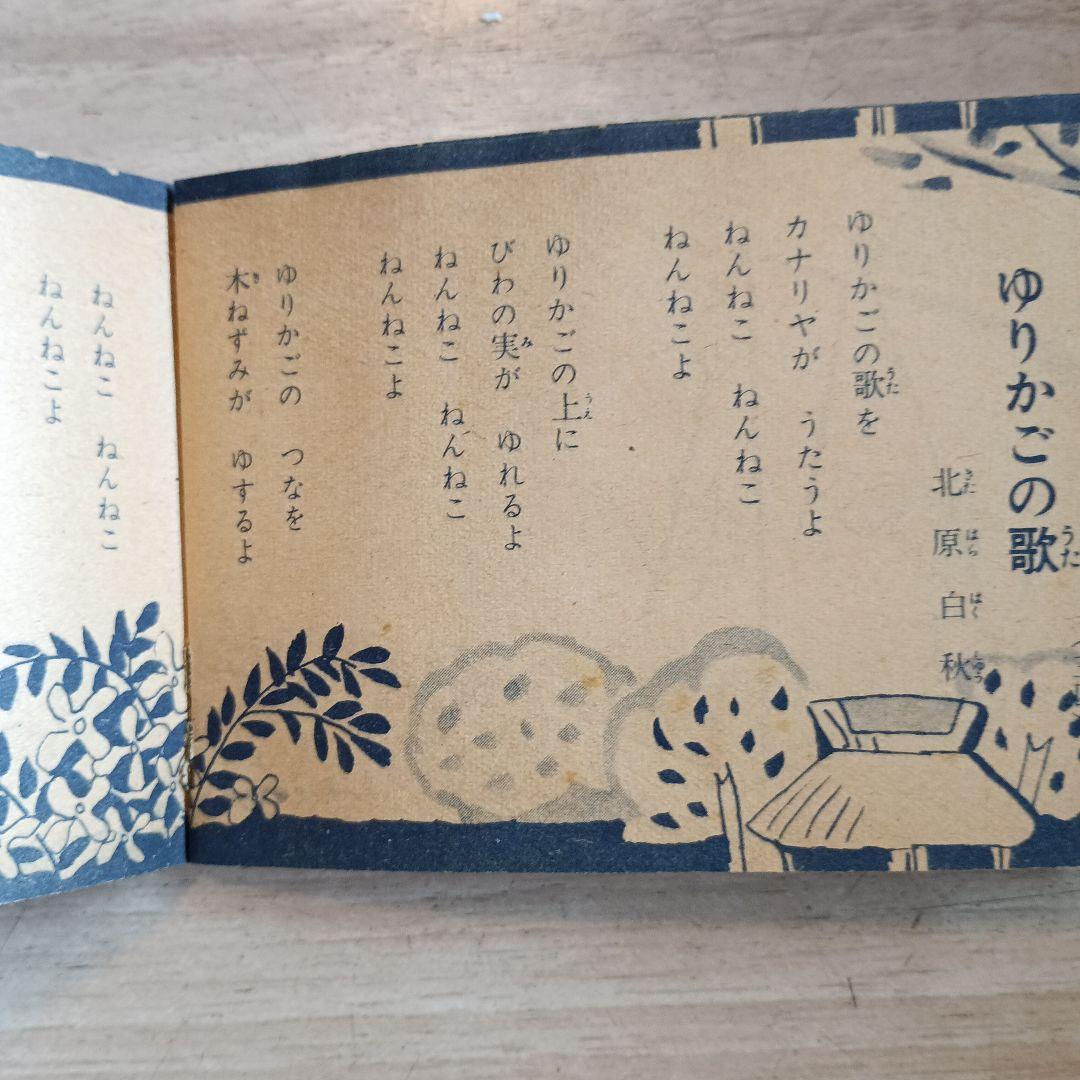 ゆりかごの歌
うた
北原白秋
きたはらはくしゅう
ゆりかごの歌を
うた
カナリヤが　うたうよ
ねんねこ　ねんねこ
ねんねこよ
ゆりかごの上に
うえ
びわの実が　ゆれるよ
み
ねんねこ　ねんねこ
ねんねこよ
ゆりかごの　つなを
木ねずみが　ゆするよ
き
ねんねこ　ねんねこ
ねんねこよ